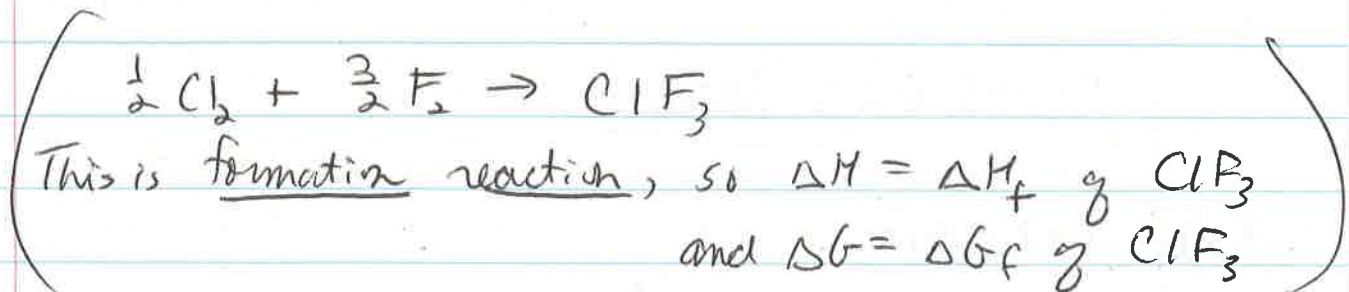 ½ Cl₂ + 3/2 F₂ → ClF₃
This is formation reaction, so ΔH = ΔH_f of ClF₃
and ΔG = ΔG_f of ClF₃